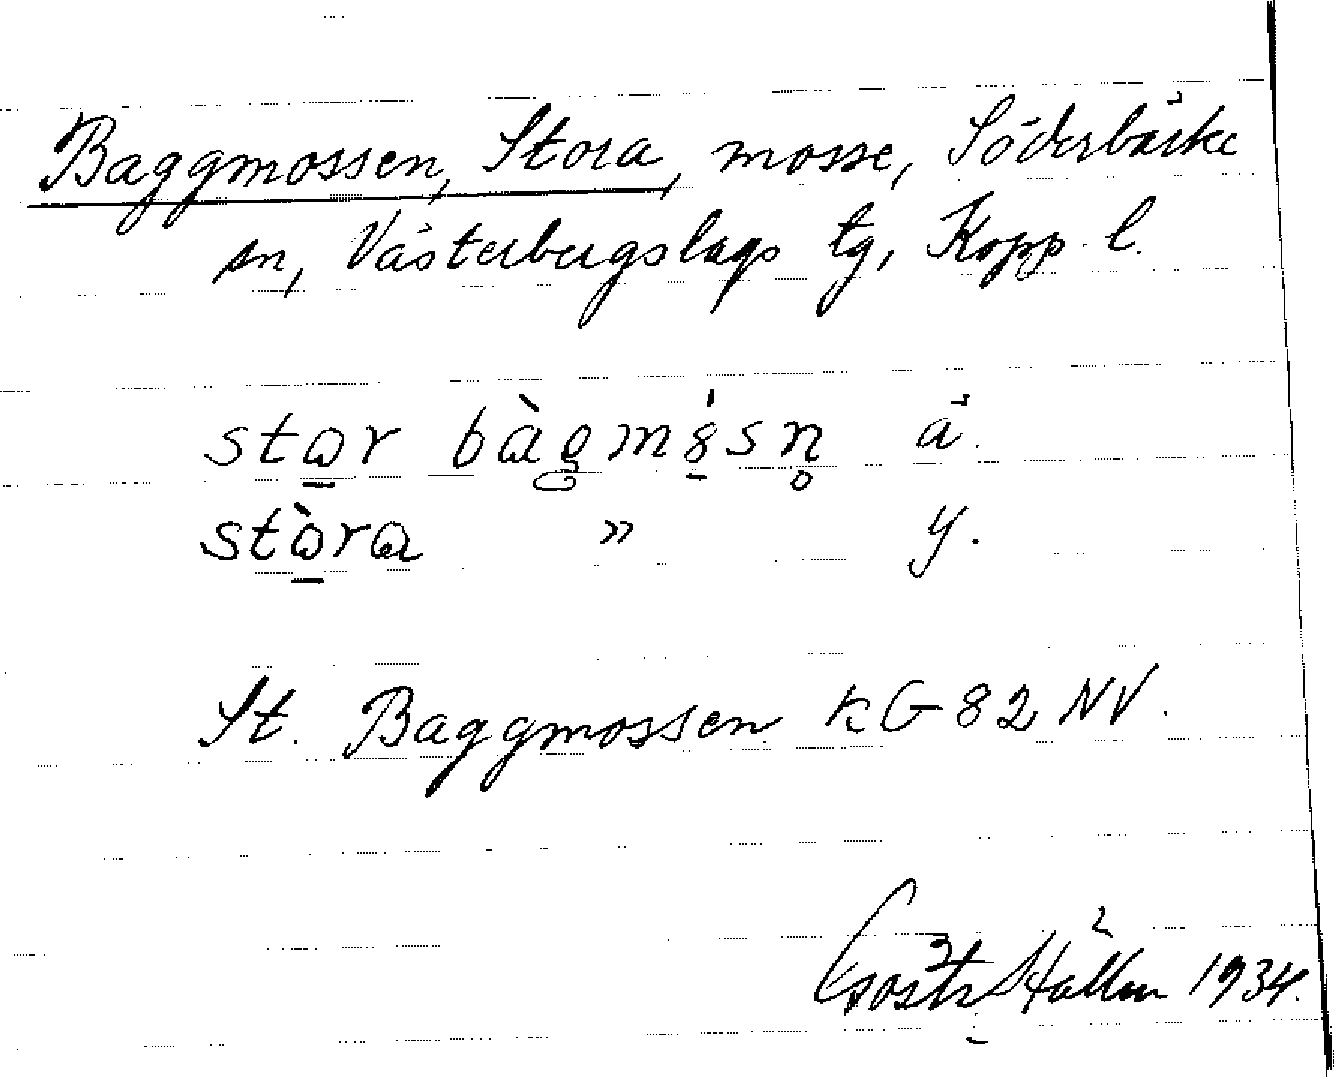 Baggmossen, Stora, mosse, Söderbärke
sn, Västerbergslags tg, Kopp. l.
stα̱r bàg̬mɞ̱́sn̥ ä.
stὰ̱ra » y.
St. Baggmossen KG 82 NV.
Gösta Hallén 1934.